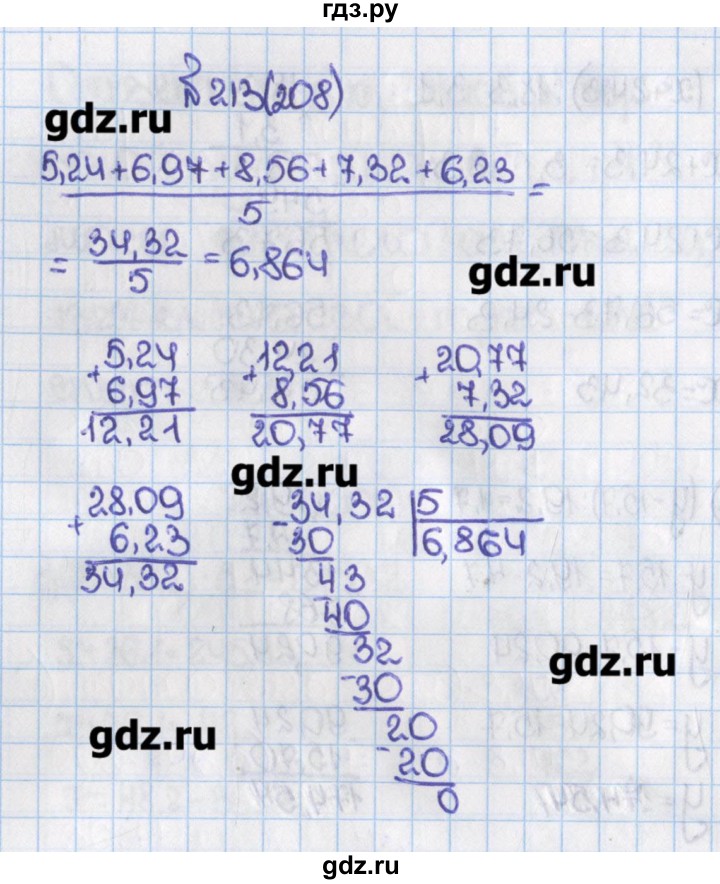 гдз.ру
№ 213(208)
gdz.ru
5,24+6,97+8,56+7,32+6,23 =
5
= 34,32 = 6,864
5
gdz.ru
+ 5,24
6,97
12,21
+ 12,21
8,56
20,77
+ 20,77
7,32
28,09
gdz.ru
+ 28,09
6,23
34,32
- 34,32 | 5
30 | 6,864
43
- 40
32
- 30
20
- 20
0
gdz.ru
gdz.ru
gdz.ru